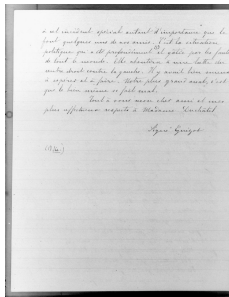 à cet incident spécial autant d'importance que le
font quelques uns de vos amis. C'est la situation
politique qui a été profondément gâtée par la faute
de tout le monde. Elle aboutira à une lutte du
centre droit contre la gauche. Il y aurait bien mieux
à espérer et à faire. Notre plus grand mal, c'est
que le bien même se fait mal.
Tout à vous mon cher ami et mes
plus affectueux respects à Madame Duchâtel.
Signé Guizot